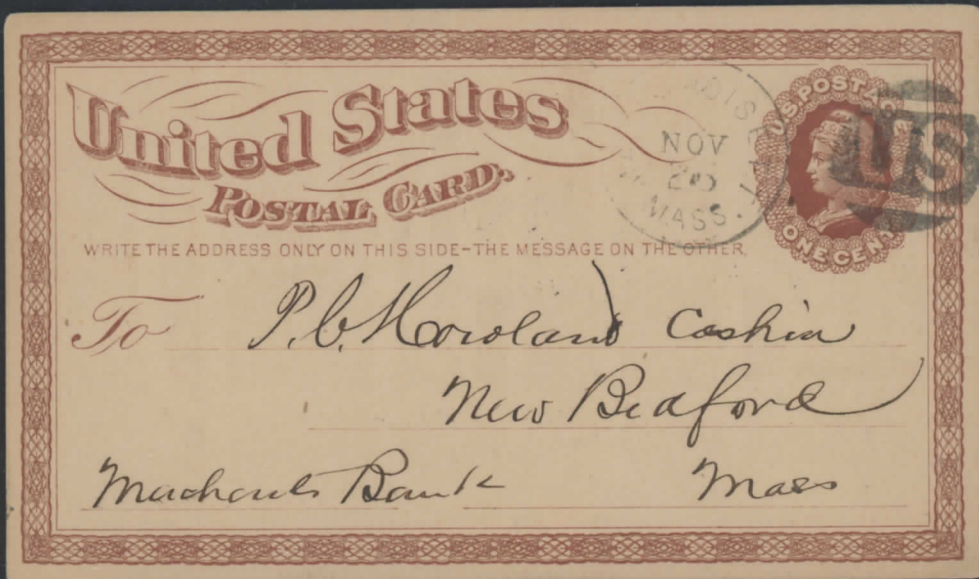 United States
POSTAL CARD.
NOV
20
MASS.
U.S. POSTAGE
ONE CENT
US
WRITE THE ADDRESS ONLY ON THIS SIDE-THE MESSAGE ON THE OTHER
To P. C. Howland Cashier
New Bedford
Merchants Bank Mass